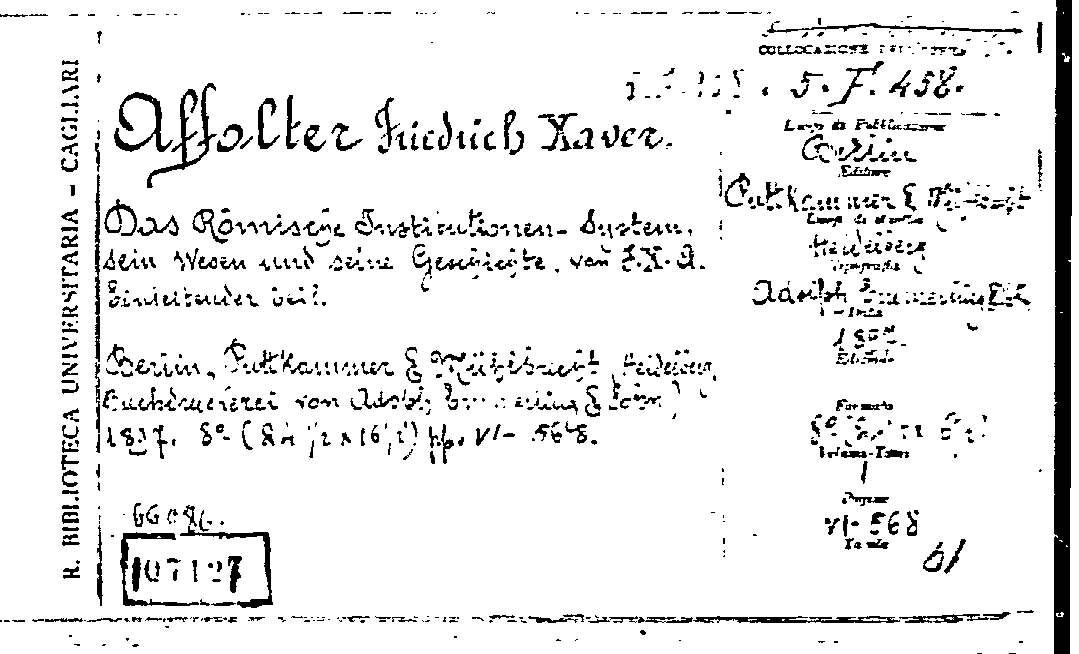 R. BIBLIOTECA UNIVERSITARIA - CAGLIARI
COLLOCAZIONE
5. F. 458.
Affolter Friedrich Xaver.
Das Römische Institutionen-System,
sein Wesen und seine Geschichte, von F.X.A.
Einleitender Teil.
Berlin, Puttkammer & Mühlbrecht (Heidelberg
Buchdruckerei von Adolph Emmerling & Sohn)
8º pp. VI- 568.
66086.
107127
Luogo di Pubblicazione
Berlin
Editore
Puttkammer & Mühlbrecht
Luogo di stampa
Heidelberg
Tipografia
Adolph Emmerling &
Data
Edizione
Formato
8º
Volume-Tomo
1
Pagine
VI- 568
Tavole
61